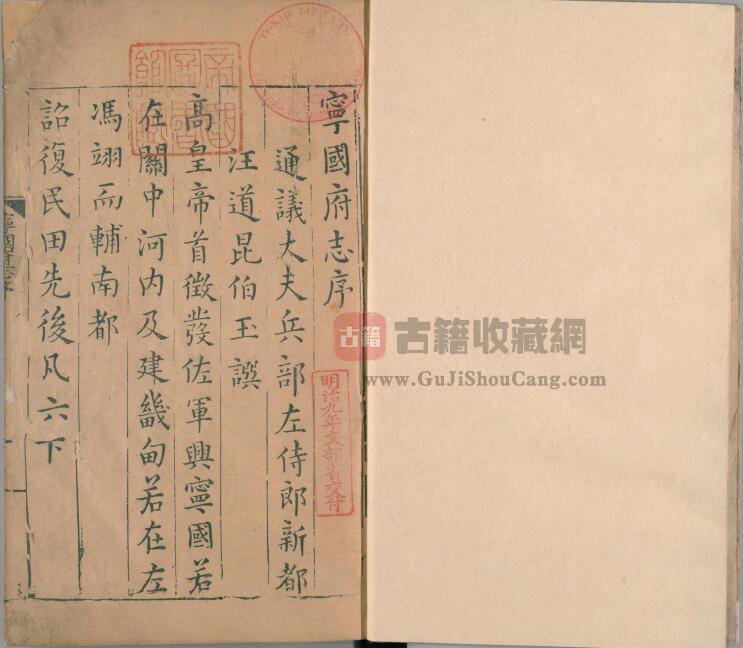 寧國府志序
通議大夫兵部左侍郎新都
汪道昆伯玉譔
高皇帝首徵發佐軍興寧國若
在關中河内及建畿甸若在左
馮翊而輔南都
詔復民田先後凡六下
TOKIO LIBRARY
明治九年文部省交付
古籍
古籍收藏網
www.GuJiShouCang.com